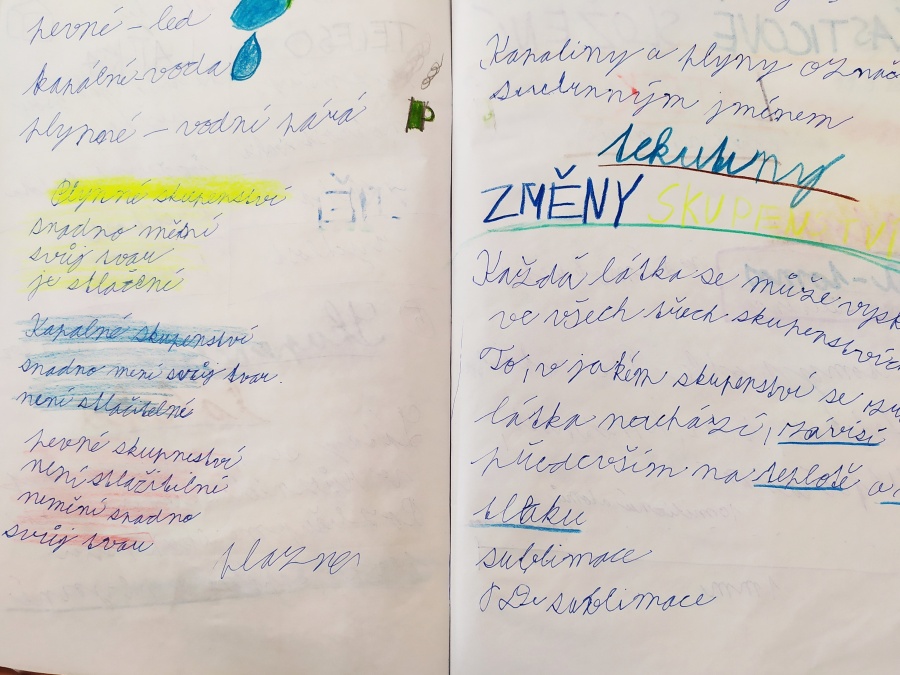 pevné - led
kapalné voda
plynné - vodní pára
Plynné skupenství
snadno mění
svůj tvar
je stlačné
Kapalné skupenství
snadno mění svůj tvar.
není stlačitelné
pevné skupneství
není stlačitilné
nemění snadno
svůj tvar
plazma
Kapaliny a plyny označ
souhrnným jménem
tekutiny
ZMĚNY SKUPENSTVÍ
Každá látka se může vysk
ve všech třech skupenstvích
To, v jakém skupenství se
látka nachází, závisí
především na teplotě a
tlaku
sublimace
De sublimace